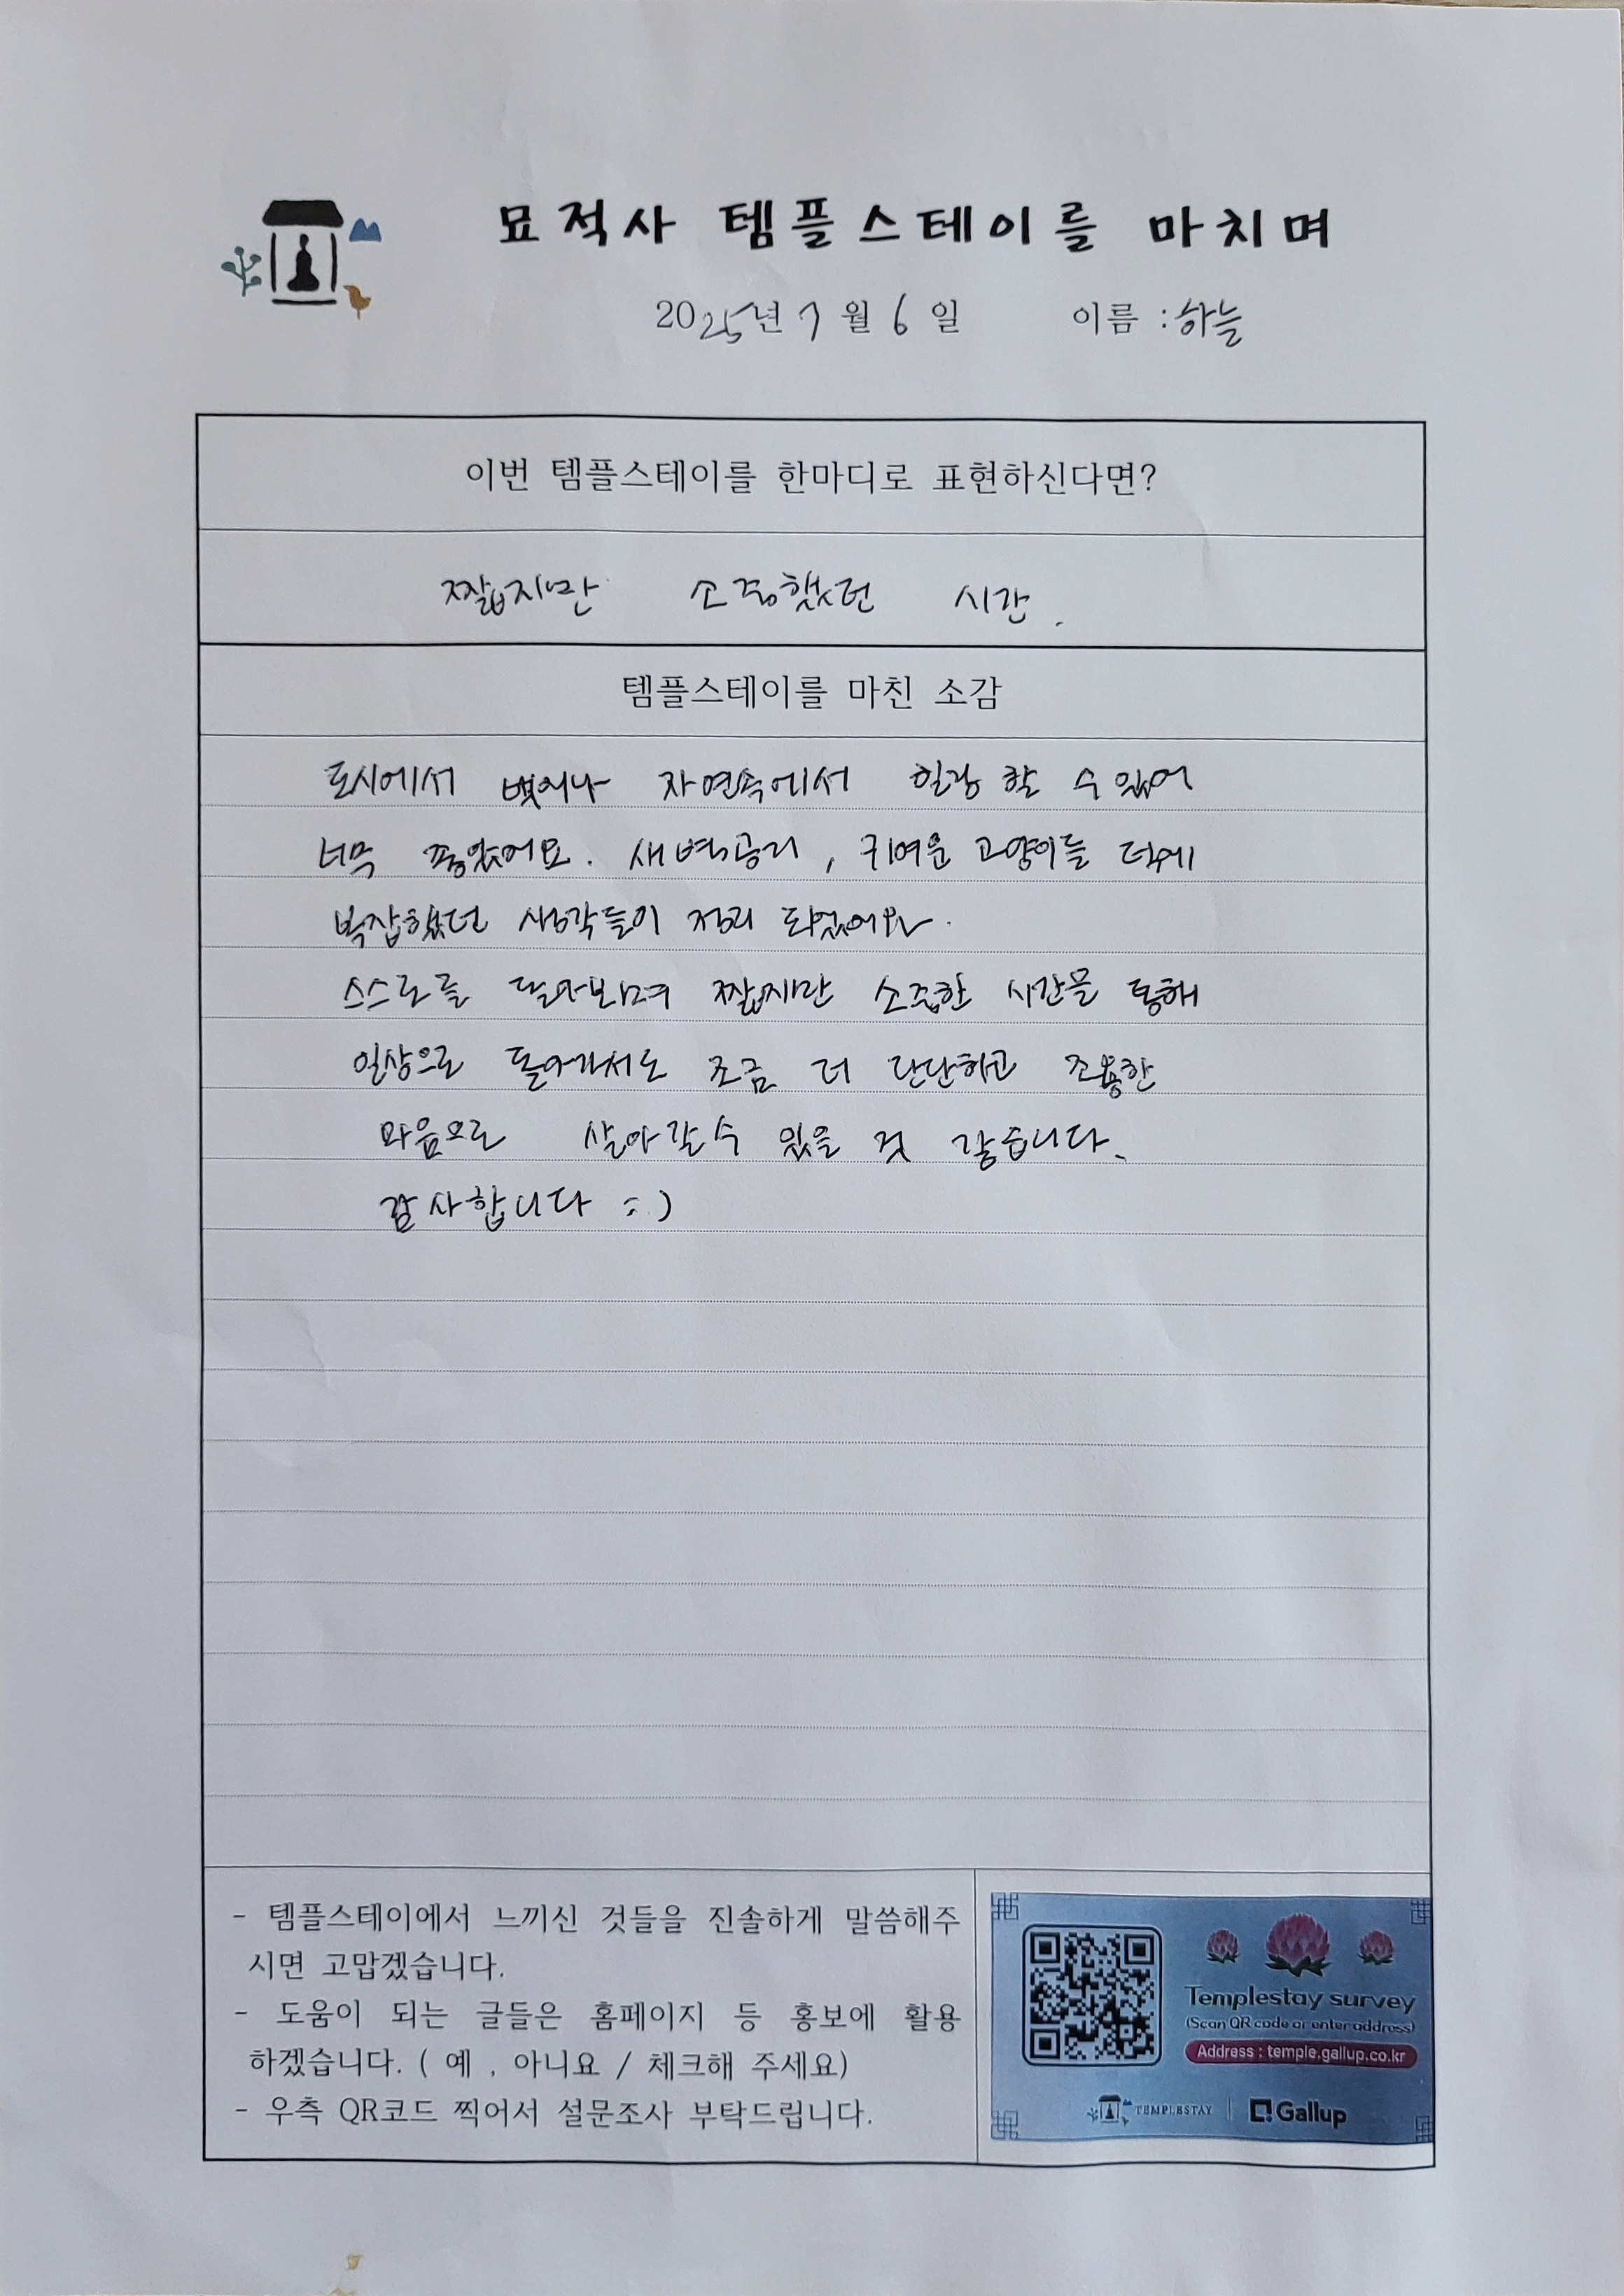 묘적사 템플스테이를 마치며
2025년 7월 6일 이름 : 하늘
이번 템플스테이를 한마디로 표현하신다면?
짧지만 소중했던 시간.
템플스테이를 마친 소감
도시에서 벗어나 자연속에서 힐링 할 수 있어
너무 좋았어요. 새벽공기, 귀여운 고양이들 덕에
복잡했던 생각들이 정리 되었어요.
스스로를 돌아보며 짧지만 소중한 시간을 통해
일상으로 돌아가서도 조금 더 단단하고 조용한
마음으로 살아갈 수 있을 것 같습니다.
감사합니다 :)
- 템플스테이에서 느끼신 것들을 진솔하게 말씀해주
시면 고맙겠습니다.
- 도움이 되는 글들은 홈페이지 등 홍보에 활용
하겠습니다. ( 예 , 아니요 / 체크해 주세요)
- 우측 QR코드 찍어서 설문조사 부탁드립니다.
Templestay survey
(Scan QR code or enter address)
Address : temple.gallup.co.kr
TEMPLESTAY Gallup